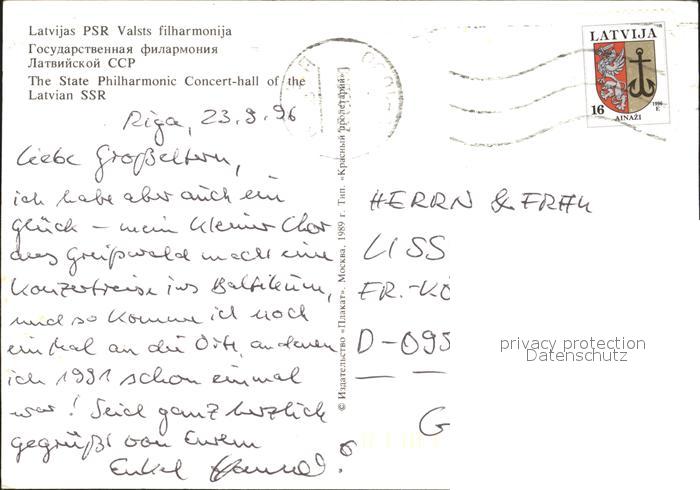 Latvijas PSR Valsts filharmonija
Государственная филармония
Латвийской ССР
The State Philharmonic Concert-hall of the
Latvian SSR
Riga, 23.9.96
Liebe Großeltern,
ich habe aber auch ein
Glück – mein kleiner Chor
aus Greifswald macht eine
Konzertreise ins Baltikum,
und so komme ich noch
einmal an die Orte, an denen
ich 1991 schon einmal
war! Seid ganz herzlich
gegrüßt von Eurem
Enkel
© Издательство «Плакат». Москва. 1989 г. Тип. «Красный пролетарий»
LATVIJA
16
1996
AINAŽI
HERRN & FRAU
LISS
FR.-KÖ
D-095
G
privacy protection
Datenschutz